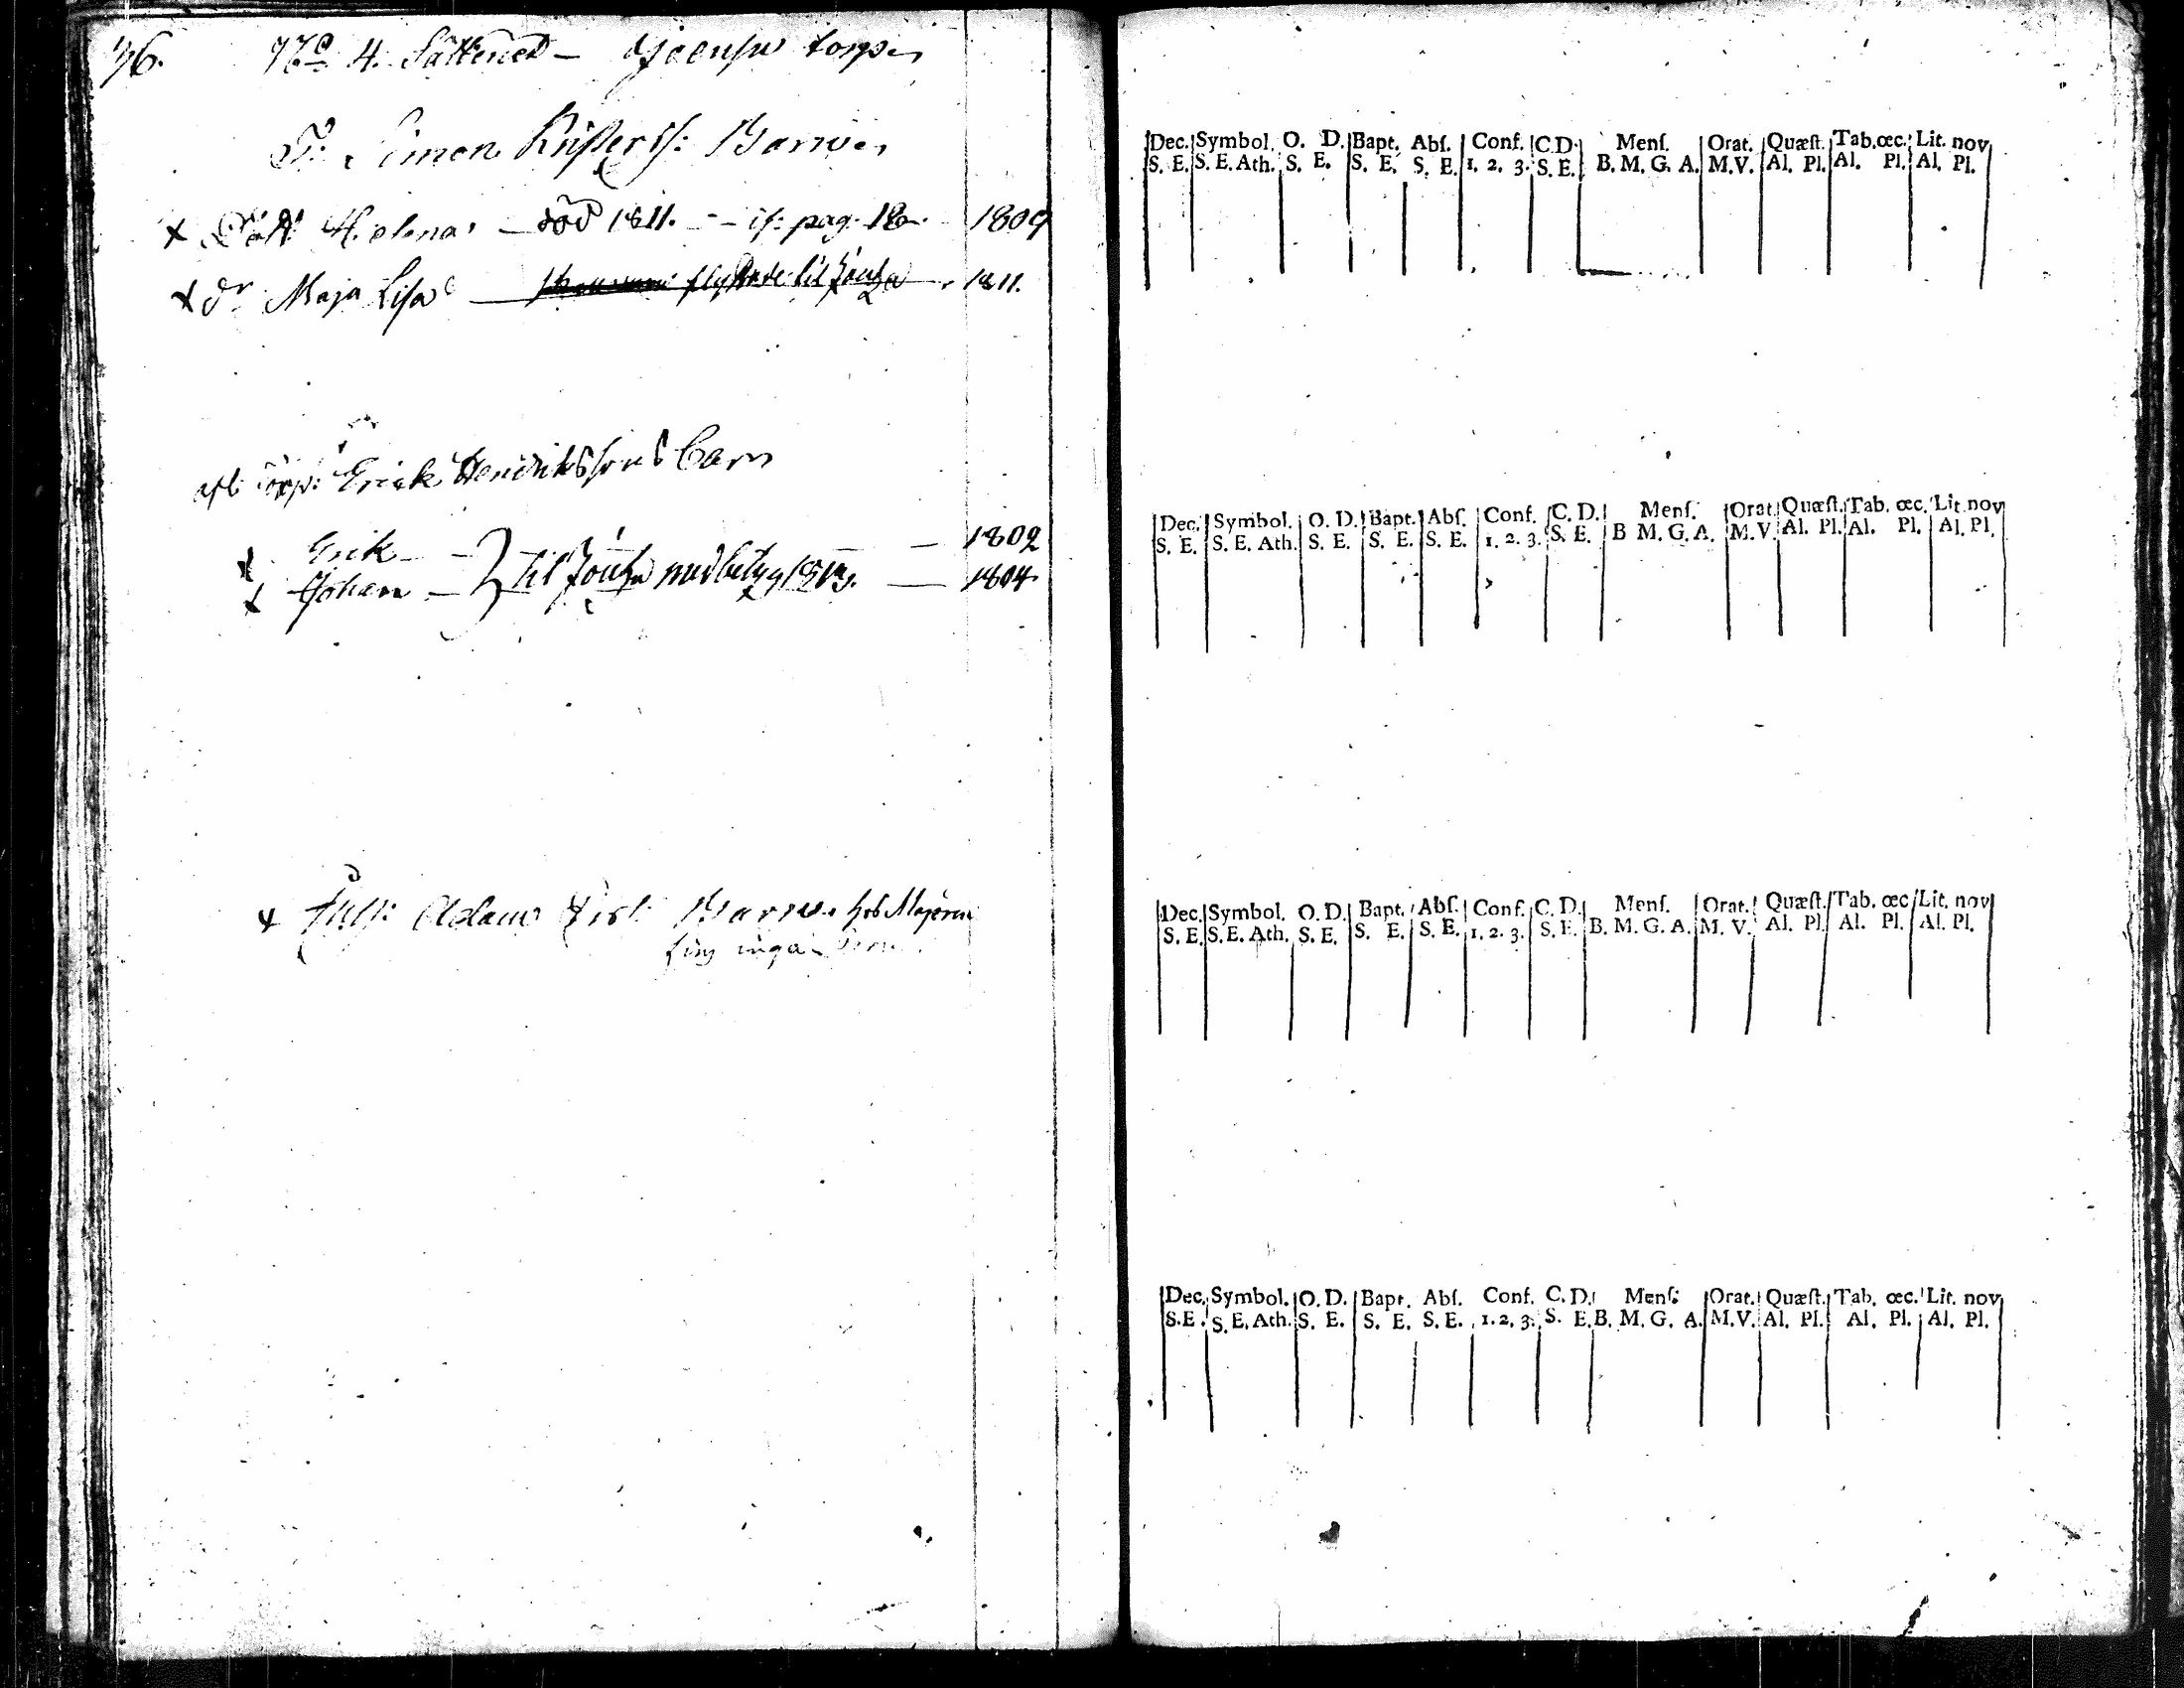 76. No 4. Sätteried -
T: Simon Kristerss: Barn
x Dött: Helena - död 1811. - pag. 18 1809
x dr Maja Lisa flyttade til 1811.
afl: Torp: Erick Henrikssons barn
x Erik - 1802
x Johan - til med betyg 1804
x Adam Barn hos Majoren
inga
Dec. Symbol. O. D. Bapt. Abſ. Conf. C.D. Menſ. Orat. Quæſt. Tab. œc. Lit. nov
S. E. S. E. Ath. S. E. S. E. S. E. 1. 2. 3. S. E. B. M. G. A. M.V. Al. Pl. Al. Pl. Al. Pl.
Dec. Symbol. O. D. Bapt. Abſ. Conf. C. D. Menſ. Orat. Quæſt. Tab. œc. Lit. nov
S. E. S. E. Ath. S. E. S. E. S. E. 1. 2. 3. S. E. B M. G. A. M.V. Al. Pl. Al. Pl. Al. Pl.
Dec. Symbol. O. D. Bapt. Abſ. Conf. C. D. Menſ. Orat. Quæſt. Tab. œc. Lit. nov
S. E. S. E. Ath. S. E. S. E. S. E. 1. 2. 3. S. E. B. M. G. A. M. V. Al. Pl. Al. Pl. Al. Pl.
Dec. Symbol. O. D. Bapt. Abſ. Conf. C. D. Menſ. Orat. Quæſt. Tab. œc. Lit. nov
S. E. S. E. Ath. S. E. S. E. S. E. 1. 2. 3. S. E. B. M. G. A. M.V. Al. Pl. Al. Pl. Al. Pl.